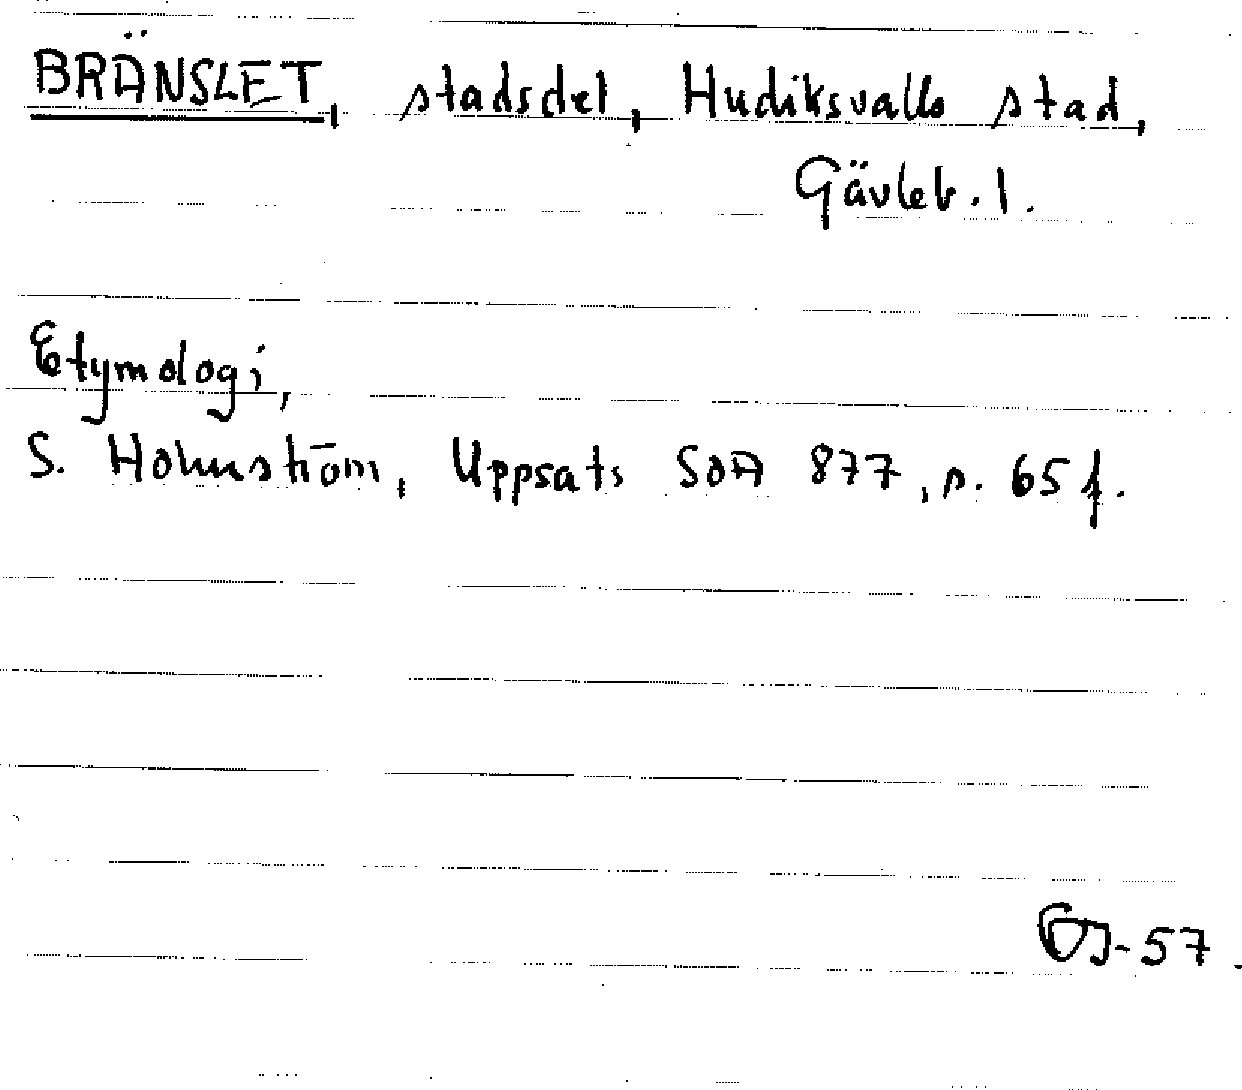 BRÄNSLET, stadsdel, Hudiksvalls stad,
Gävleb. l.
Etymologi,
S. Holmström, Uppsats SOA 877, s. 65 f.
-57.